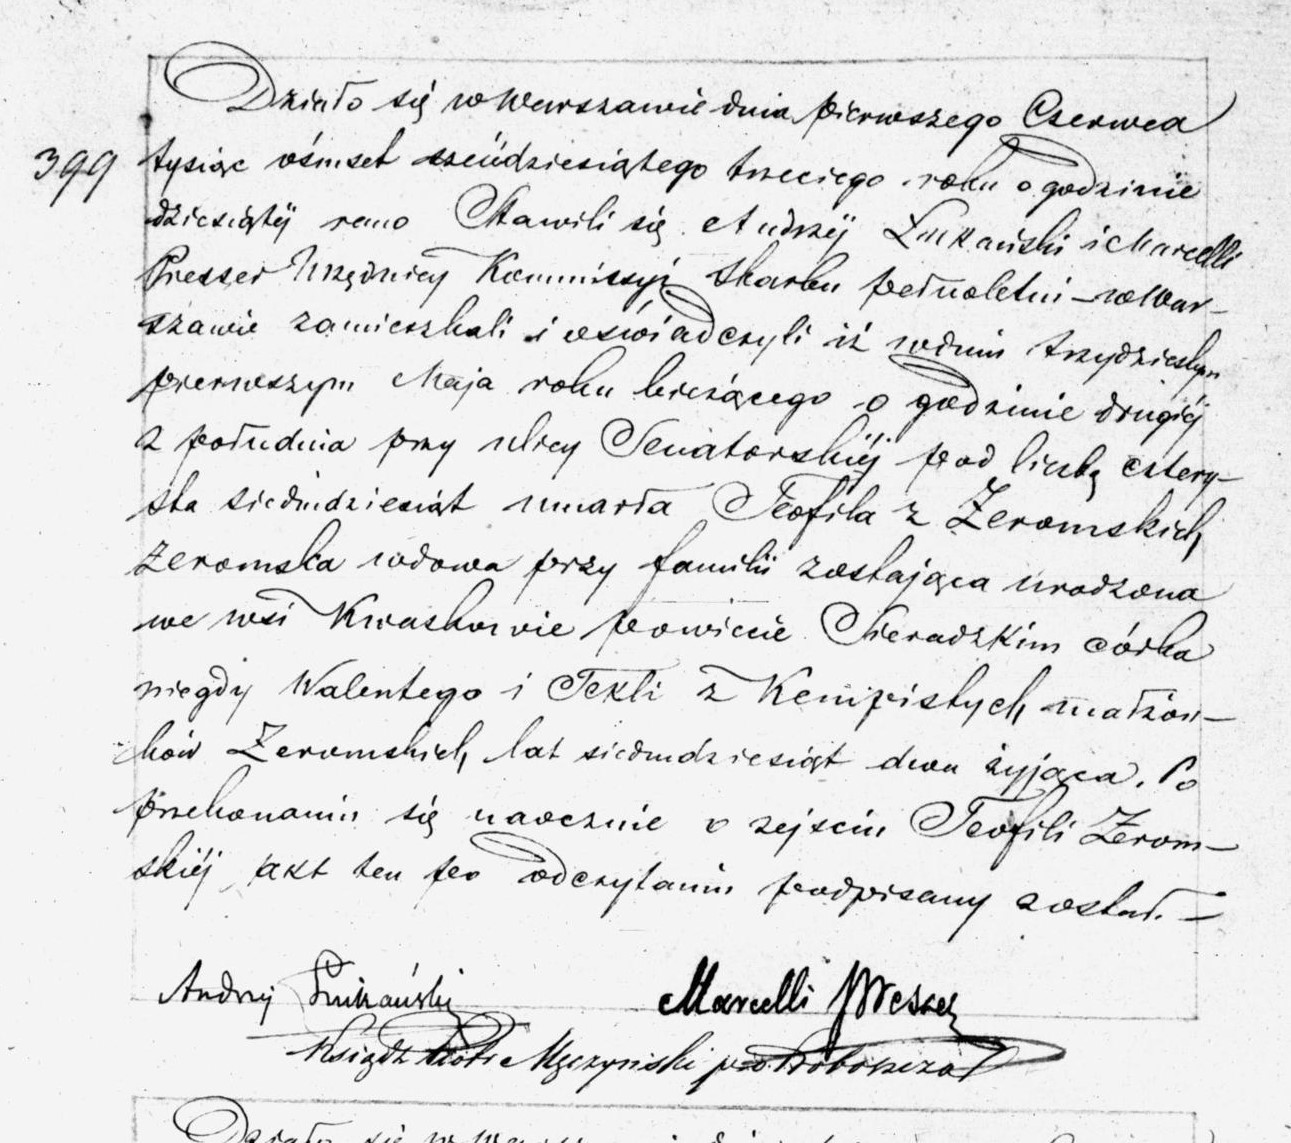 Działo się w Warszawie dnia pierwszego Czerwca
399 tysiąc ośmset sześdziesiątego trzeciego roku o godzinie
dziesiątéj rano Stawili się Andrzéj Łukański i Marcelli
Presser Urzędnicy Kommissyi Skarbu pełnoletni w War-
szawie zamieszkali i oświadczyli iż w dniu trzydziestym
pierwszym Maja roku bieżącego o godzinie drugiéj
z południa przy ulicy Senatorskiéj pod liczbą cztery-
sta siedmdziesiąt umarła Teofila z Żeromskich
Żeromska wdowa przy familii zostająca urodzona
we wsi Kwaskowie powiecie Sieradzkim córka
niegdy Walentego i Tekli z Kempistych małżon-
ków Żeromskich, lat siedmdziesiąt dwa żyjąca. Po
przekonaniu się naocznie o zejściu Teofili Żerom-
skiéj akt ten po odczytaniu podpisany został. —
Andrzéj Łukański Marcelli Presser
Ksiądz Męczyński Proboszcza
Działo się w